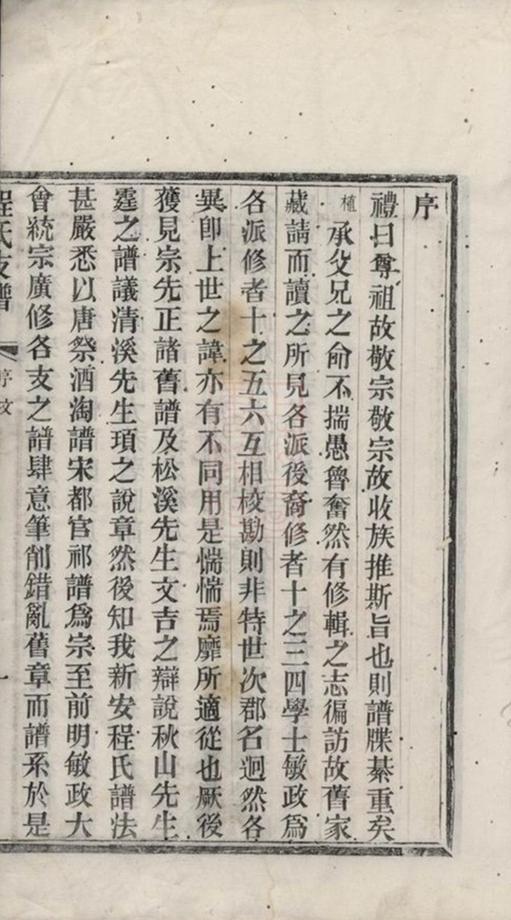 序
禮曰尊祖故敬宗敬宗故收族推斯旨也則譜牒綦重矣
植承父兄之命不揣愚魯奮然有修輯之志徧訪故舊家
藏請而讀之所見各派後裔修者十之三四學士敏政爲
各派修者十之五六互相校勘則非特世次郡名迥然各
異卽上世之諱亦有不同用是惴惴焉靡所適從也厥後
獲見宗先正諸舊譜及松溪先生文吉之辯說秋山先生
霆之譜議清溪先生項之說章然後知我新安程氏譜法
甚嚴悉以唐祭酒淘譜宋都官祁譜爲宗至前明敏政大
會統宗廣修各支之譜肆意筆削錯亂舊章而譜系於是
程氏支譜 序文 一